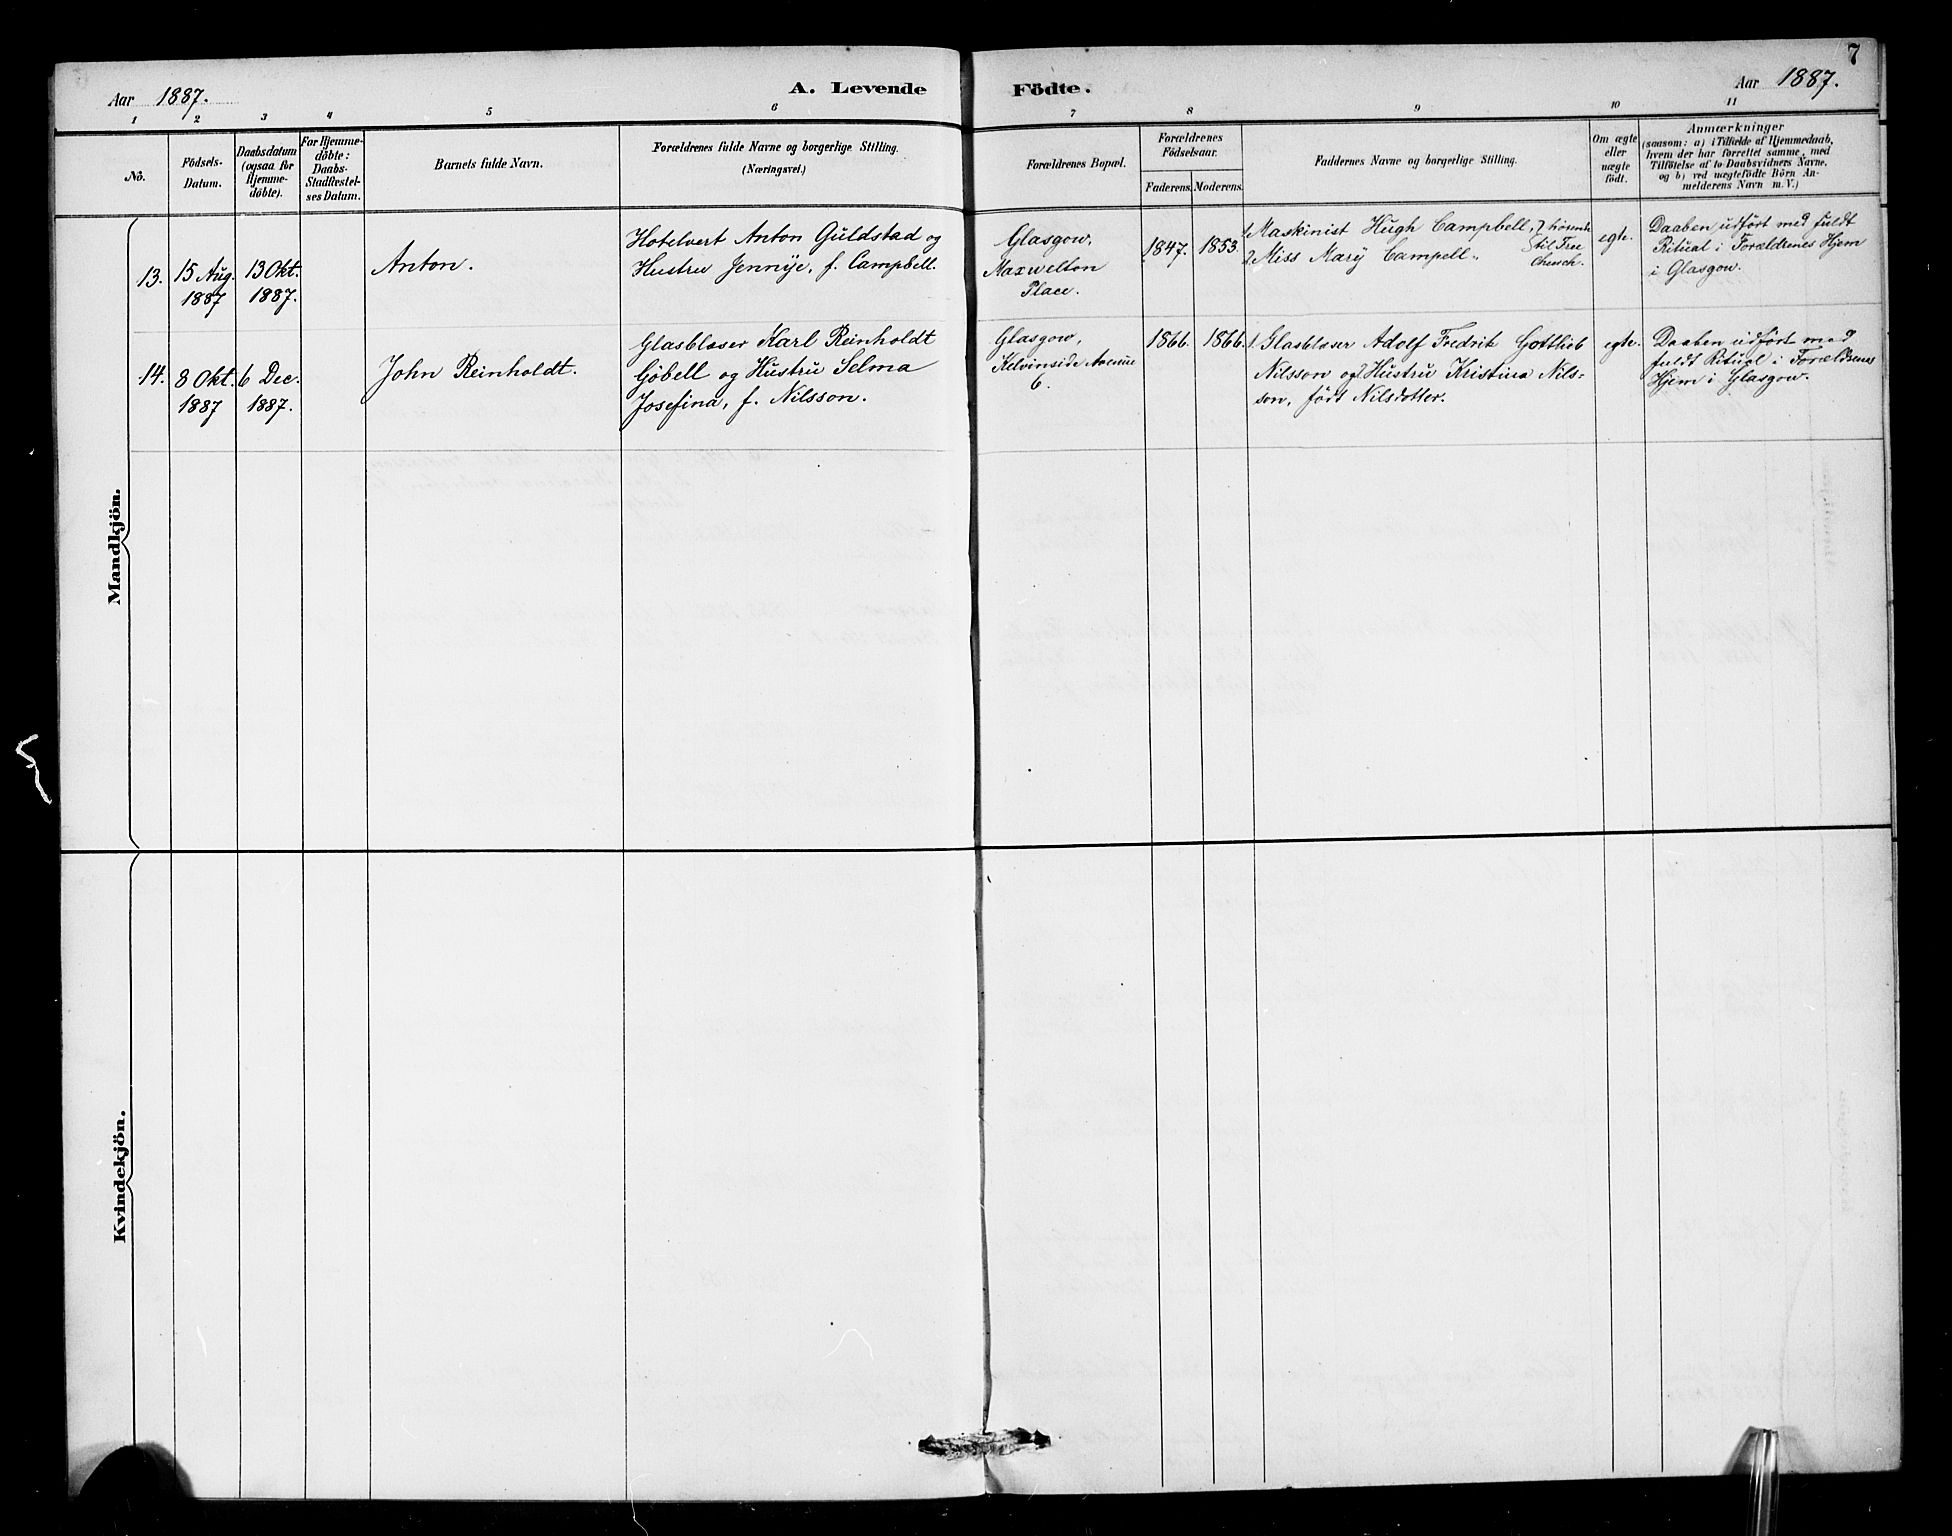 7
Aar 1887.
A. Levende Födte.
Aar 1887.
1 2 3 4 5 6 7 8 9 10 11
No.
Födsels-
Datum.
Daabsdatum
(ogsaa for
Hjemme-
döbte).
For Hjemme-
döbte:
Daabs-
Stadfæstel-
ses Datum.
Barnets fulde Navn.
Forældrenes fulde Navne og borgerlige Stilling.
(Næringsvei.)
Forældrenes Bopæl.
Forældrenes
Födselsaar.
Faderens. Moderens.
Faddernes Navne og borgerlige Stilling.
Om ægte
eller
uægte
födt.
Anmærkninger
(saasom: a) i Tilfælde af Hjemmedaab,
hvem der har forrettet samme, med
Tilföielse af to Daabsvidners Navne,
og b) ved uægtefödte Börn An-
melderens Navn m. V.)
Mandkjön.
13.
15 Aug.
1887
13 Okt.
1887.
Anton.
Hotelvert Anton Guldstad og
Hustru Jennÿe, f. Campbell.
Glasgow,
Maxwelton
Place.
1847.
1853.
1. Maskinist Hugh Campbell,
2. Miss Mary Campell
til Free
Church.
egte.
Daaben udført med fuldt
Ritual i Forældrenes Hjem
i Glasgow.
14.
8 Okt.
1887
6 Dec.
1887.
John Reinholdt.
Glasblaser Karl Reinholdt
Göbell og Hustru Selma
Josefina, f. Nilsson.
Glasgow,
Kelvinside Avenue
6.
1866.
1866.
1. Glasblaser Adolf Fredrik Gottlieb
Nilsson og 2 Hustru Kristina Nils-
son, født Nilsdotter.
egte.
Daaben udført med
fuldt Ritual i Forældrenes
Hjem i Glasgow.
Kvindekjön.